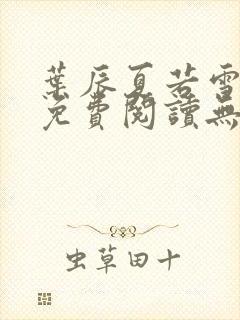 葉辰夏若雪
免費閱讀無
虫草田十